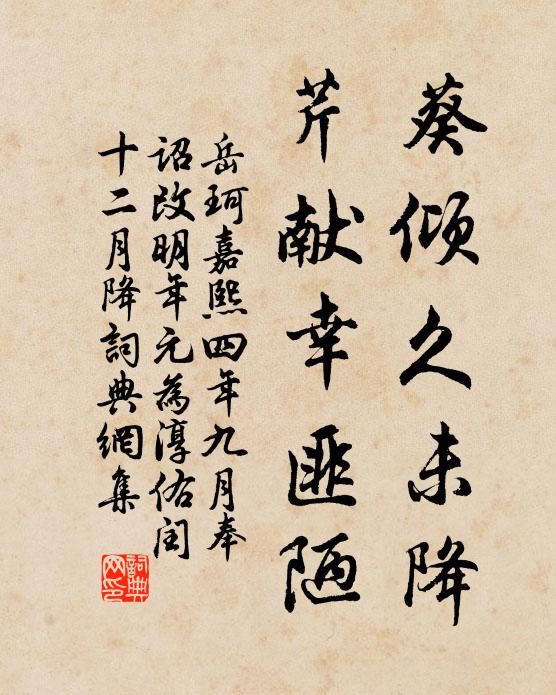 葵倾久未降
芹献幸匪陋
岳珂嘉熙四年九月奉
詔改明年元為淳佑闰
十二月降詞典網集
詞典
网印